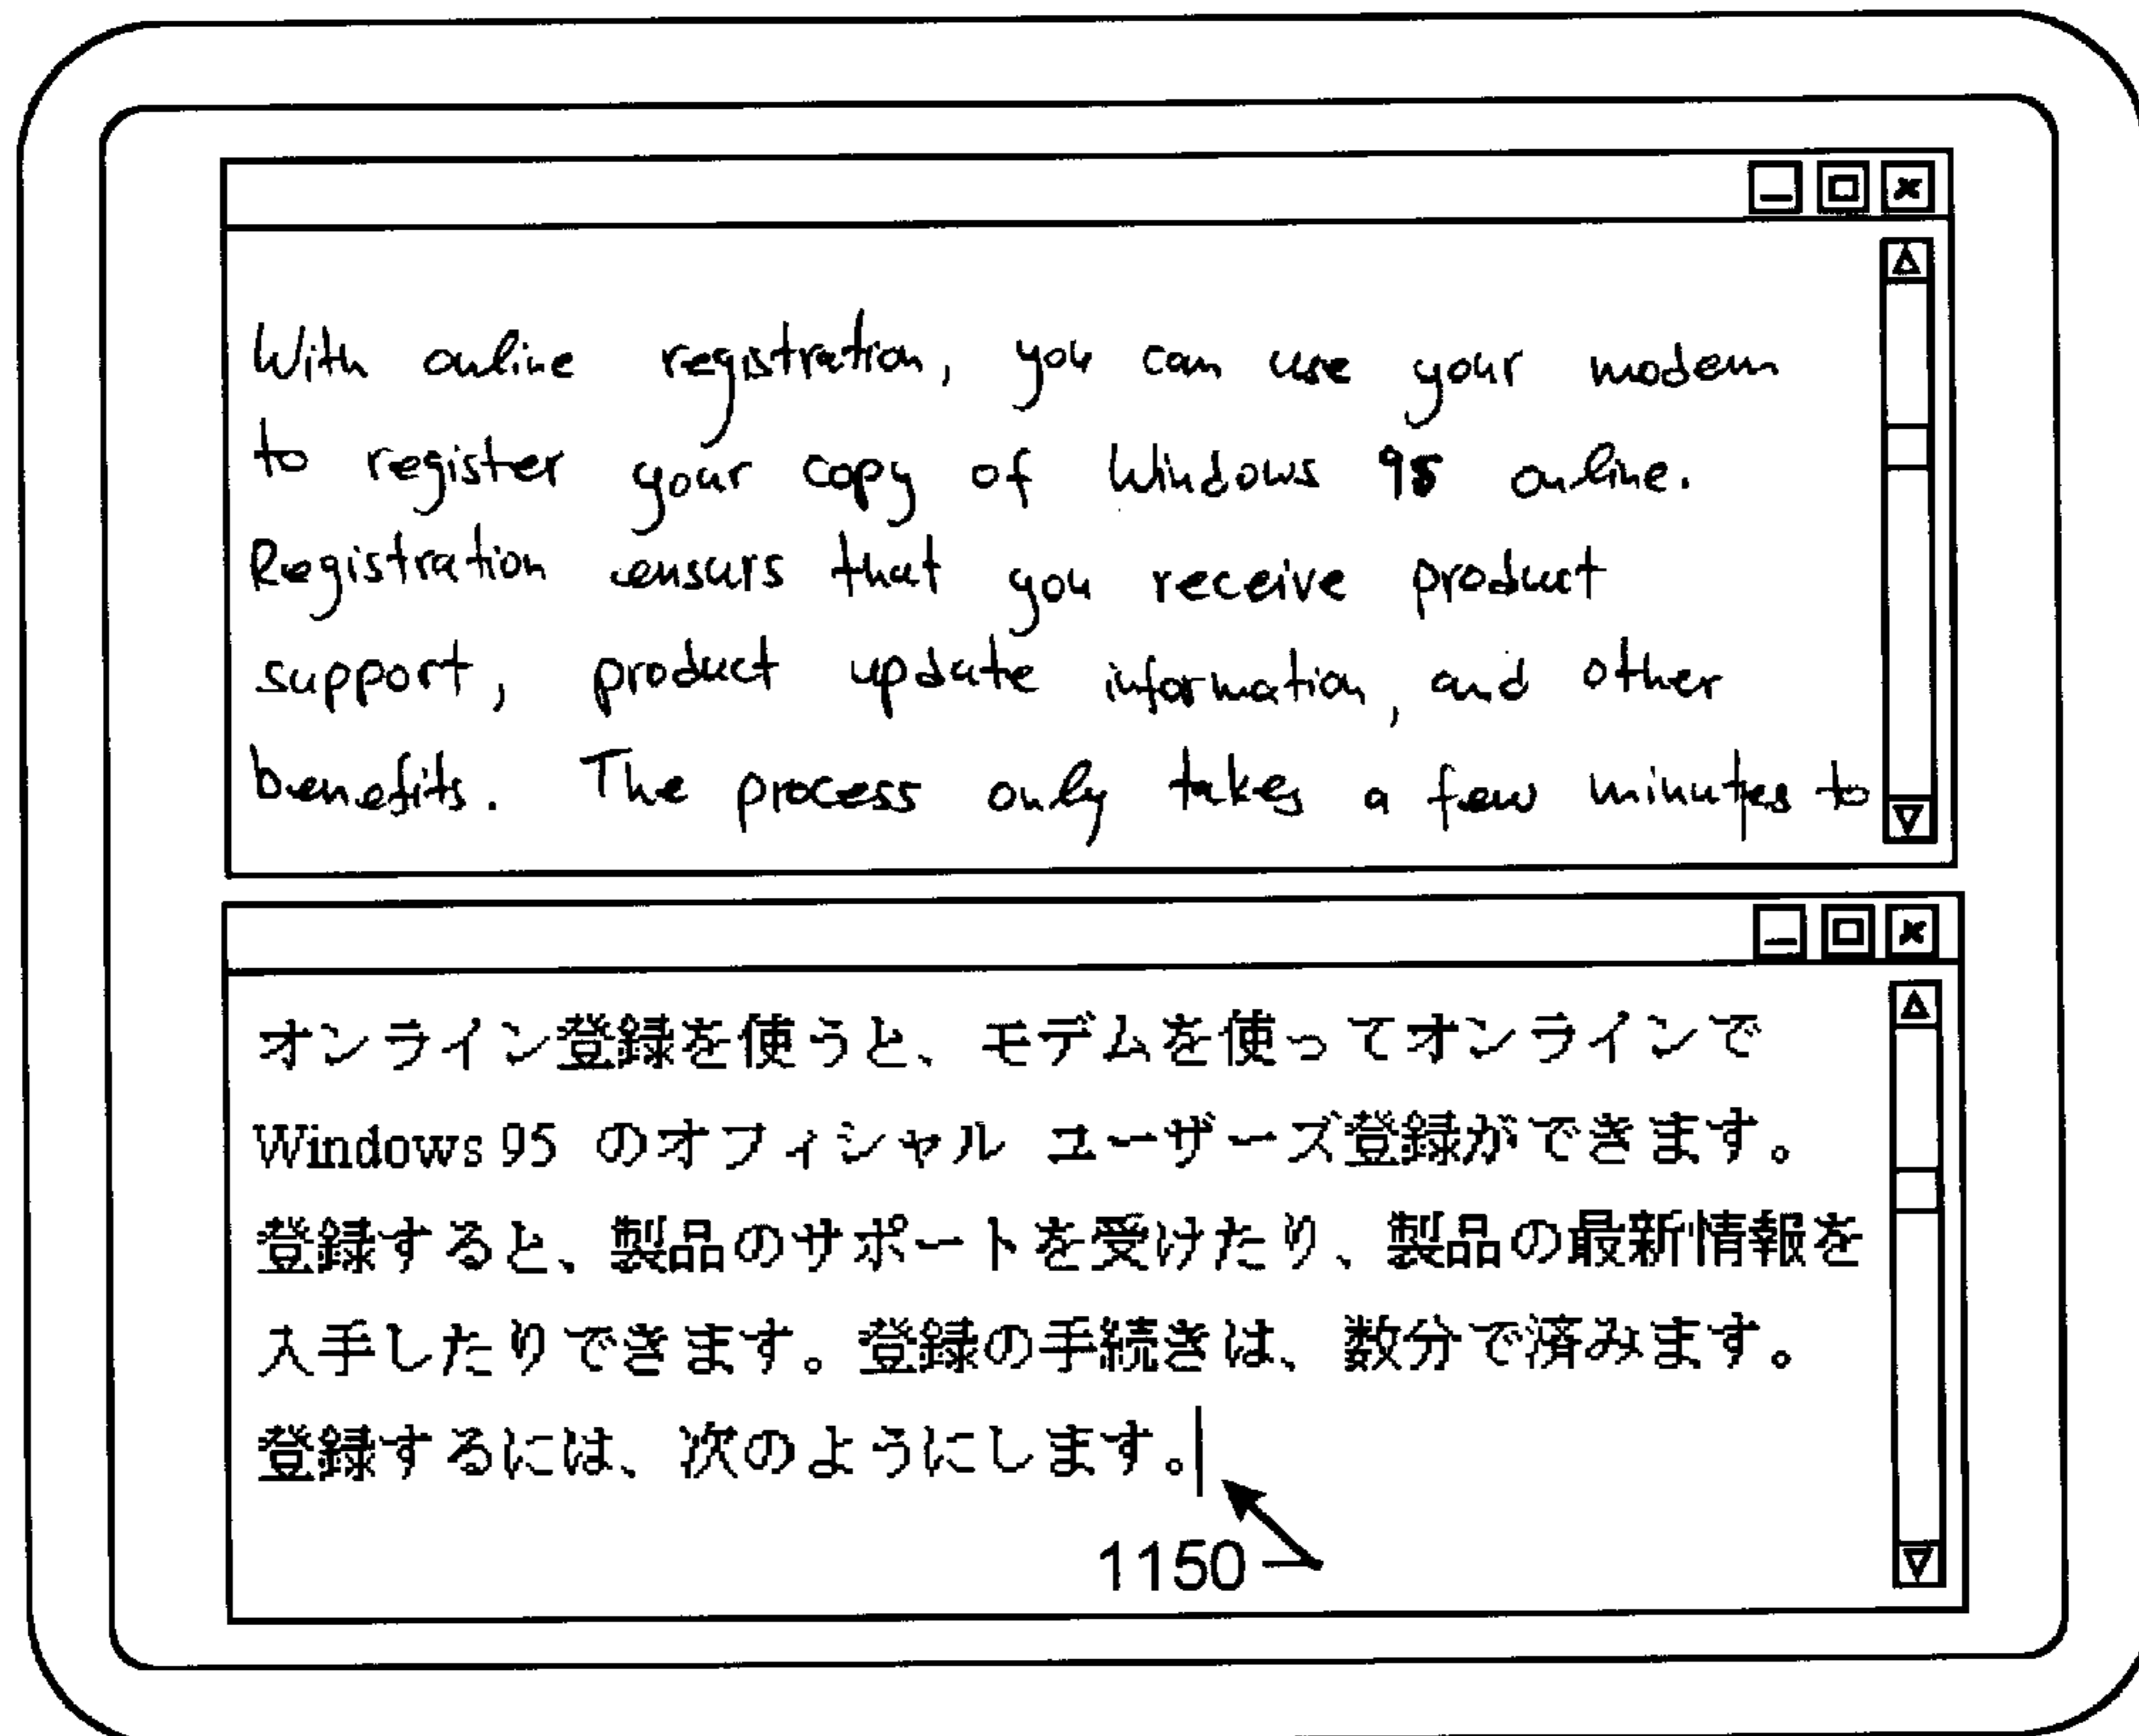 With online registration, you can use your modem
to register your copy of Windows 95 online.
Registration ensurs that you receive product
support, product update information, and other
benefits. The process only takes a few minutes to
オンライン登録を使うと、モデムを使ってオンラインで
Windows 95 のオフィシャル ユーザーズ登録ができます。
登録すると、製品のサポートを受けたり、製品の最新情報を
入手したりできます。登録の手続きは、数分で済みます。
登録するには、次のようにします。
1150